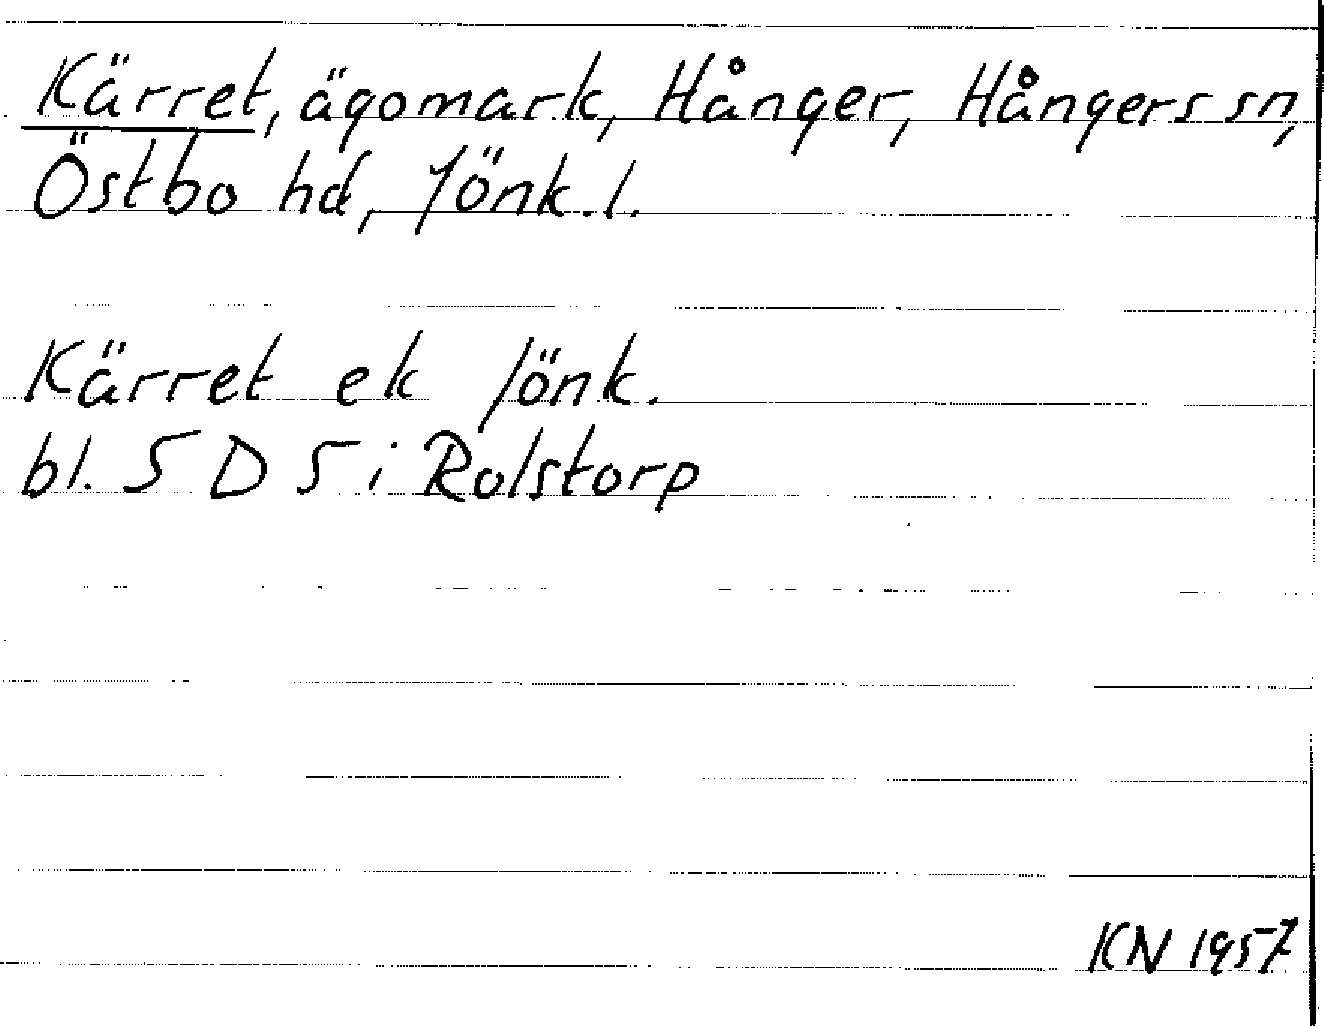 Kärret, ägomark, Hånger, Hångers sn,
Östbo hd, Jönk. l.
Kärret ek Jönk.
bl. 5 D 5 i Rolstorp
KN 1957